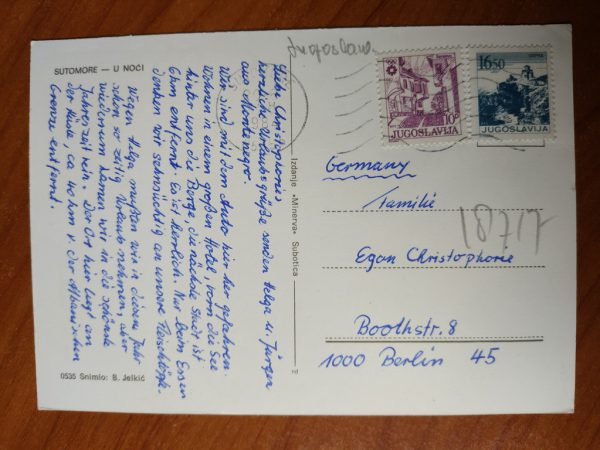 SUTOMORE — U NOĆI
Liebe Christophories
herzliche Urlaubsgrüße senden Helga u. Jürgen
aus Montenegro.
Wir sind mit dem Auto hier her gefahren.
Wohnen in einem großen Hotel vorn die See
hinter uns die Berge, die nächste Stadt ist
6 km entfernt. Es ist herrlich. Nur beim Essen
denken wir sehnsüchtig an unsere
Wegen Helga mußten wir in diesem Jahr
schon so zeitig Urlaub nehmen, aber
wiederum kamen wir in die schönste
Jahreszeit rein. Der Ort hier liegt an
der Küse, ca 40 km v. der Albanischen
Grenze entfernt.
0535 Snimio: B. Jelkić
Izdanje »Minerva« Subotica
Jugoslawien
10
JUGOSLAVIJA
16.50
JUGOSLAVIJA
Germany
Familie
18717
Egon Christophorie
Boothstr. 8
1000 Berlin 45